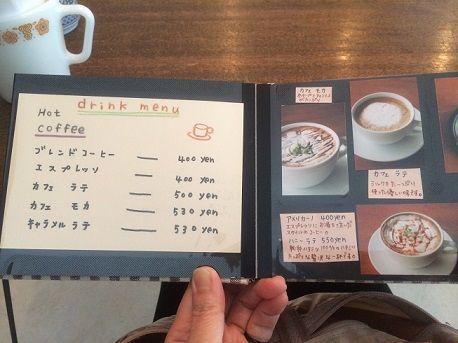 drink menu
Hot
coffee
ブレンドコーヒー — 400 yen
エスプレッソ — 400 yen
カフェ ラテ — 500 yen
カフェ モカ — 530 yen
キャラメル ラテ — 530 yen
カフェ モカ
カフェ ラテ
ミルクたっぷり
使った優しい味です。
アメリカーノ 400yen
エスプレッソにお湯を
コーヒー。
ハニー ラテ 550yen
100%のハチミツ
贅沢な一杯です。